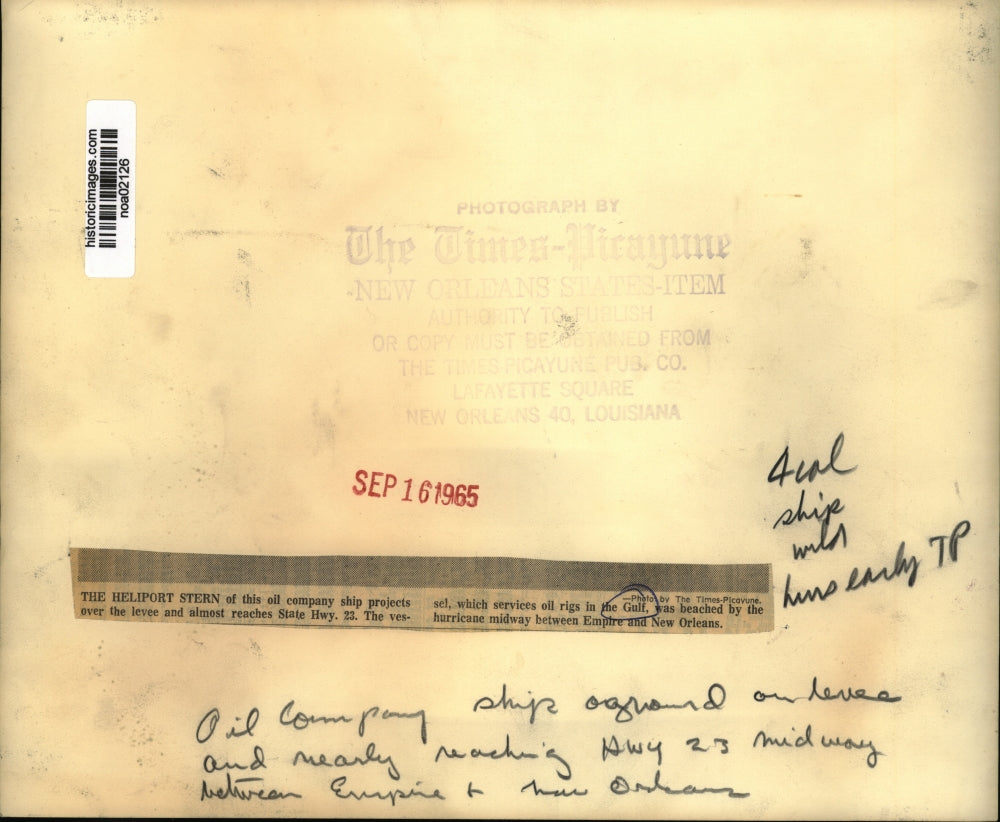 historicimages.com
noa02126
PHOTOGRAPH BY
The Times-Picayune
-NEW ORLEANS STATES-ITEM
AUTHORITY TO PUBLISH
OR COPY MUST BE OBTAINED FROM
THE TIMES-PICAYUNE PUB. CO.
LAFAYETTE SQUARE
NEW ORLEANS 40, LOUISIANA
SEP 16 1965
4 col
ship
wild
early TP
—Photo by The Times-Picayune.
THE HELIPORT STERN of this oil company ship projects
over the levee and almost reaches State Hwy. 23. The ves-
sel, which services oil rigs in the Gulf, was beached by the
hurricane midway between Empire and New Orleans.
Oil Company ship aground on levee
and nearly reaching Hwy 23 midway
between Empire + New Orleans